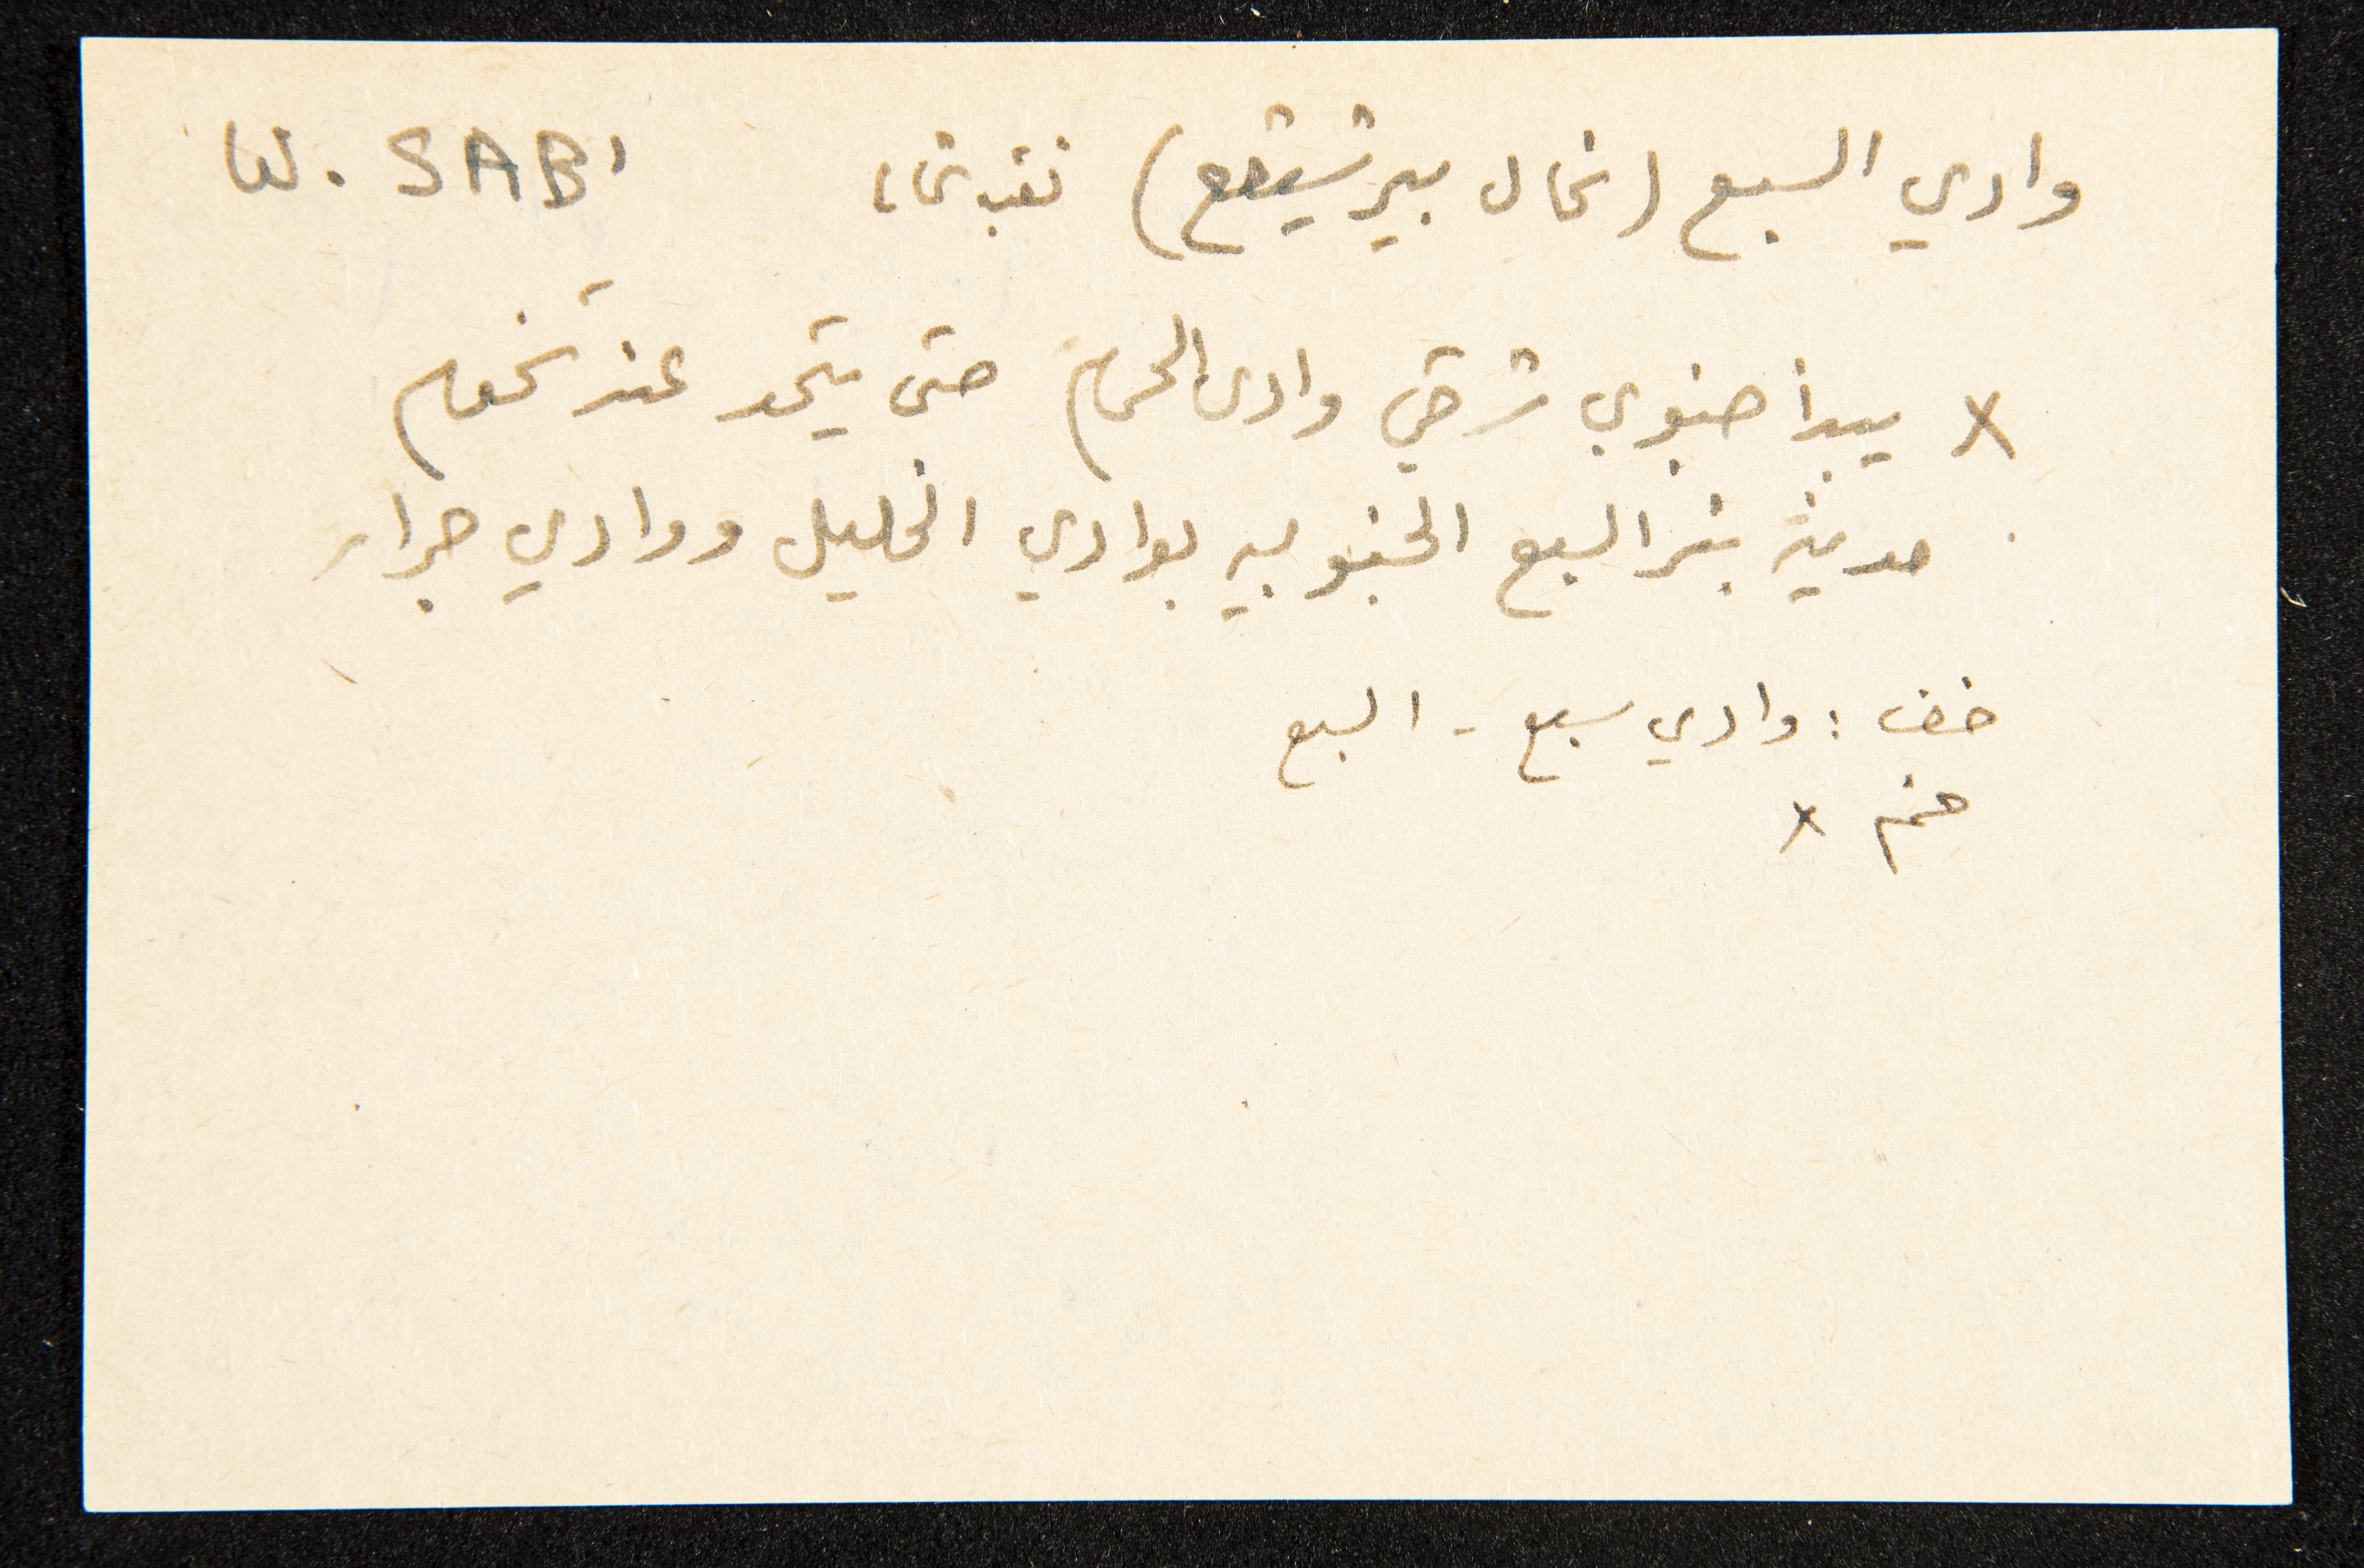 وادي السبع (نحال بير شيفع) نقب شما، W. SABI
x يبدأ جنوبي شرقي وادى الحمام حتى يتحد عند تخوم
مدينة بئر السبع الجنوبيه بوادي الخليل ووادي جرار
خف : وادي سبع - السبع
x